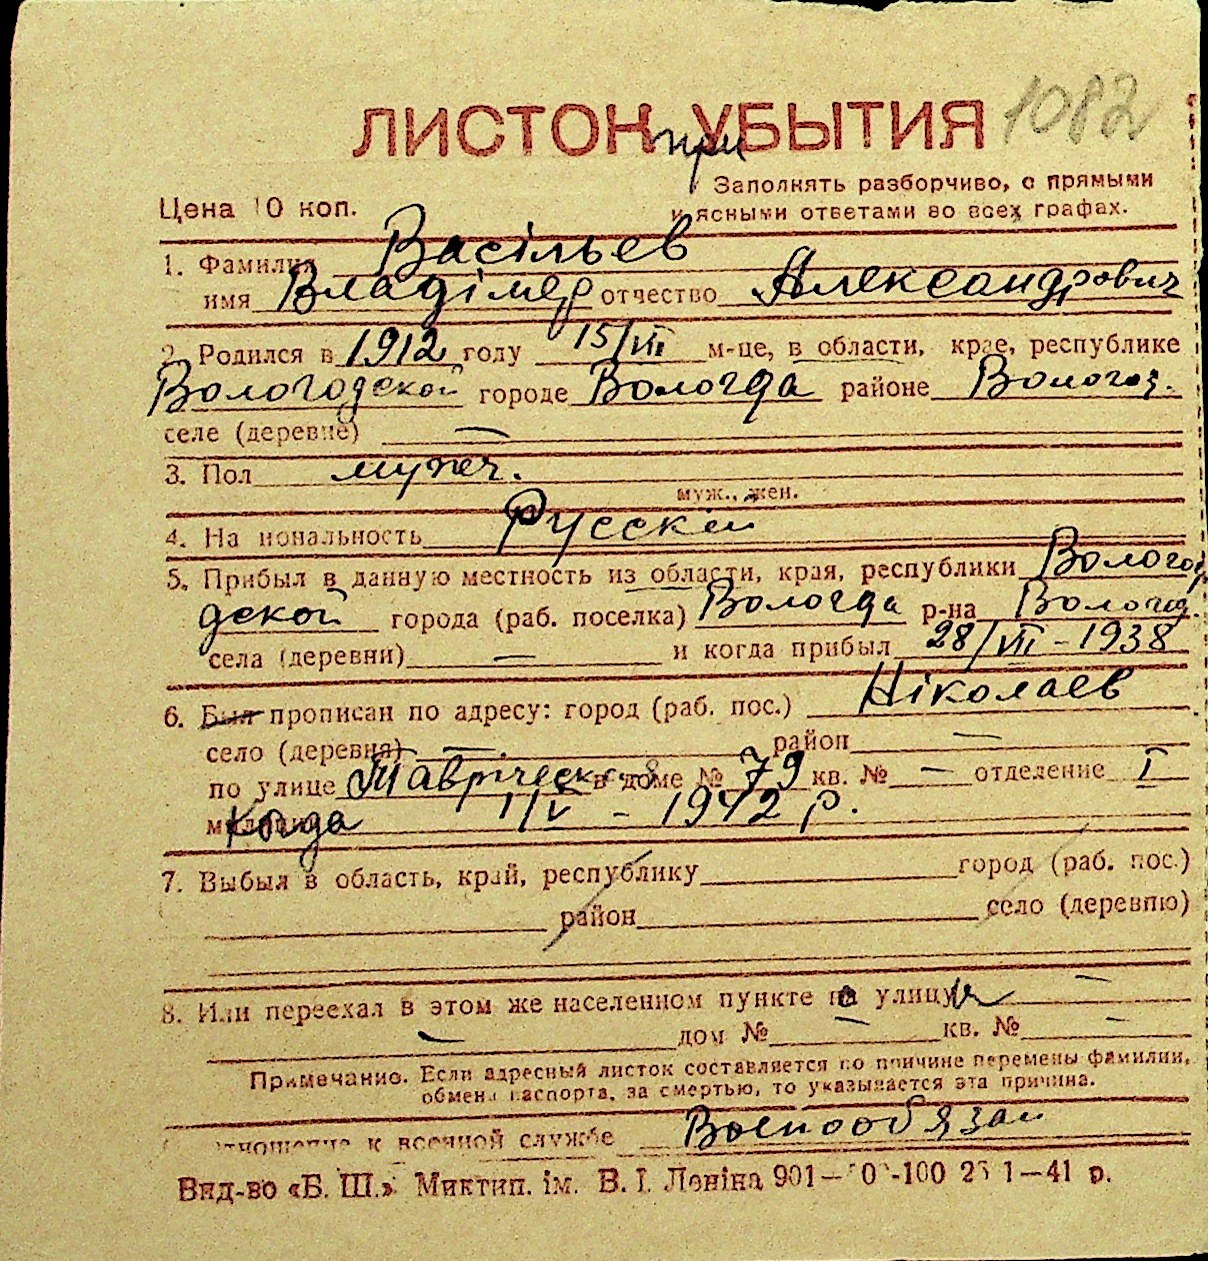 1082
ЛИСТОК УБЫТИЯ
при
Заполнять разборчиво, с прямыми
Цена 10 коп. и ясными ответами во всех графах.
1. Фамилия Васільев
имя Владімер отчество Александрович
2. Родился в 1912 году 15/VII м-це, в области, крае, республике
Вологодской городе Вологда районе Вологод.
селе (деревне) —
3. Пол мужеч.
муж., жен.
4. Национальность Русскій
5. Прибыл в данную местность из области, края, республики Волого
дской города (раб. поселка) Вологда р-на Вологод.
села (деревни) — и когда прибыл 28/VII - 1938
6. Был прописан по адресу: город (раб. пос.) Ніколаев
село (деревня) — район —
по улице Тавріческая в доме № 79 кв. № — отделение I
Когда 1/V - 1942 р.
7. Выбыл в область, край, республику город (раб. пос.)
район село (деревню)
8. Или переехал в этом же населенном пункте на улицу —
— дом № — кв. № —
Примечание. Если адресный листок составляется по причине перемены фамилии,
обмена паспорта, за смертью, то указывается эта причина.
отношение к военной службе Военообязан
Вид-во «Б. Ш.» Миктип. ім. В. І. Леніна 901— -100 25 1—41 р.